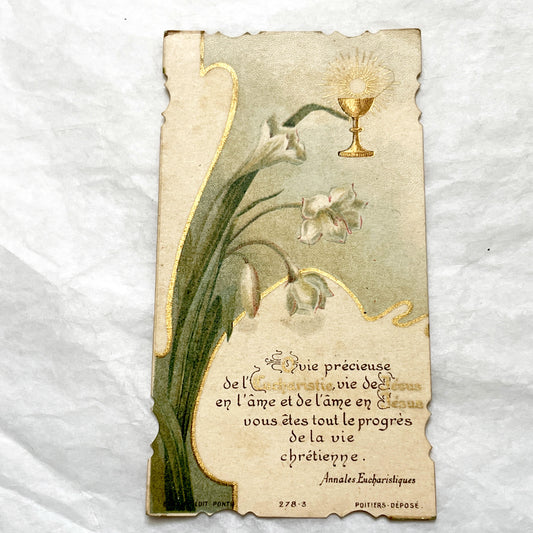 O vie précieuse
de l'Eucharistie, vie de Jésus
en l'âme et de l'âme en Jésus
vous êtes tout le progrès
de la vie
chrétienne.
Annales Eucharistiques
278-3 POITIERS-DÉPOSÉ.